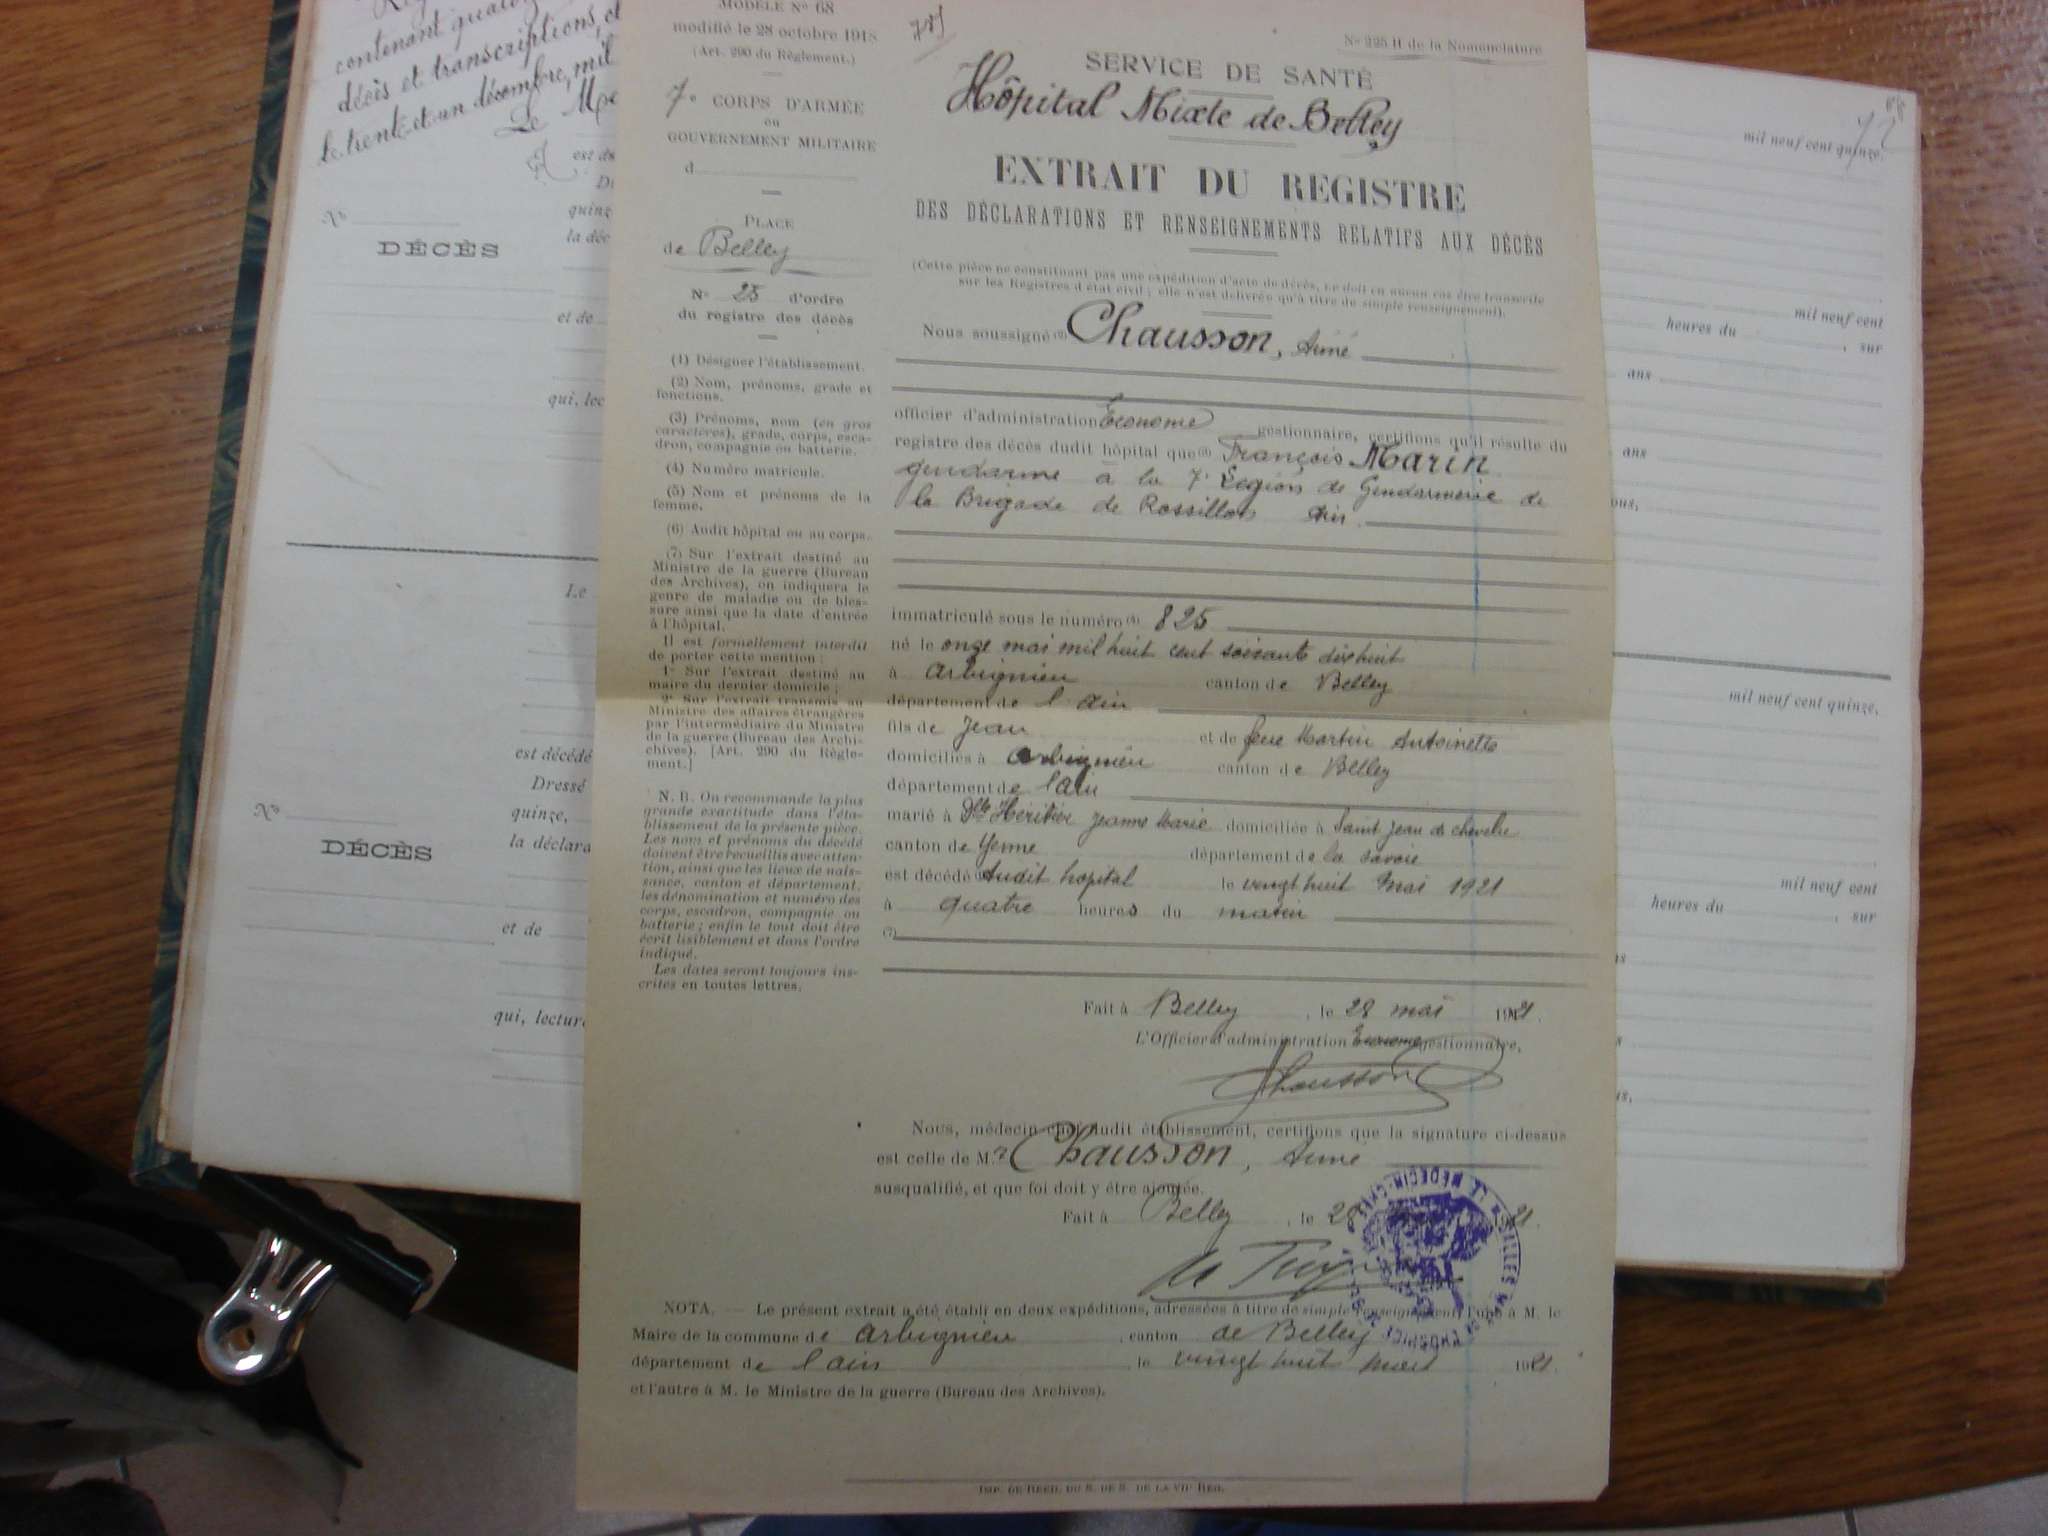 contenant
décès et transcriptions, et
le trente et un décembre, mil
Le
quinz
Nº
DÉCÈS
la déc
et de
qui, lec
Le
est décédé
Dressé
Nº
quinze,
DÉCÈS
la déclara
et de
qui, lecture
MODÈLE Nº 68
modifié le 28 octobre 1918
(Art. 290 du Règlement.)
7e CORPS D'ARMÉE
ou
GOUVERNEMENT MILITAIRE
d
PLACE
de Belley
Nº 25 d'ordre
du registre des décès
(1) Désigner l'établissement.
(2) Nom, prénoms, grade et
fonctions.
(3) Prénoms, nom (en gros
caractères), grade, corps, esca-
dron, compagnie ou batterie.
(4) Numéro matricule.
(5) Nom et prénoms de la
femme.
(6) Audit hôpital ou au corps.
(7) Sur l'extrait destiné au
Ministre de la guerre (Bureau
des Archives), on indiquera le
genre de maladie ou de bles-
sure ainsi que la date d'entrée
à l'hôpital.
Il est formellement interdit
de porter cette mention :
1º Sur l'extrait destiné au
maire du dernier domicile ;
2º Sur l'extrait transmis au
Ministre des affaires étrangères
par l'intermédiaire du Ministre
de la guerre (Bureau des Archi-
chives). [Art. 290 du Règle-
ment.]
N. B. On recommande la plus
grande exactitude dans l'éta-
blissement de la présente pièce.
Les nom et prénoms du décédé
doivent être recueillis avec atten-
tion, ainsi que les lieux de nais-
sance, canton et département,
les dénomination et numéro des
corps, escadron, compagnie ou
batterie ; enfin le tout doit être
écrit lisiblement et dans l'ordre
indiqué.
Les dates seront toujours ins-
crites en toutes lettres.
Nº 225 H de la Nomenclature
SERVICE DE SANTÉ
Hôpital Mixte de Belley
EXTRAIT DU REGISTRE
DES DÉCLARATIONS ET RENSEIGNEMENTS RELATIFS AUX DÉCÈS
(Cette pièce ne constituant pas une expédition d'acte de décès, ne doit en aucun cas être transcrite
sur les Registres d'état civil ; elle n'est délivrée qu'à titre de simple renseignement).
Nous soussigné (2) Chausson, Aimé
officier d'administration Econome gestionnaire, certifions qu'il résulte du
registre des décès dudit hôpital que (3) François Marin
gendarme à la 7e Légion de Gendarmerie de
la Brigade de Rossillon Ain.
immatriculé sous le numéro (4) 825
né le onze mai mil huit cent soixante dix huit
à Arbignieu canton de Belley
département de l'ain
fils de Jean et de feue Martin Antoinette
domiciliés à Arbignieu canton de Belley
département de l'ain
marié à Dlle Héritier Jeanne Marie domiciliée à Saint Jean de chevelu
canton de Yenne département de la savoie
est décédé Audit hôpital le vingt huit mai 1921
à quatre heures du matin
(7)
Fait à Belley, le 28 mai 1921.
L'Officier d'administration Econome gestionnaire,
Chausson
Nous, médecin-chef dudit établissement, certifions que la signature ci-dessus
est celle de M.r Chausson, Aimé
susqualifié, et que foi doit y être ajoutée.
Fait à Belley, le 28 21.
NOTA. — Le présent extrait a été établi en deux expéditions, adressées à titre de simple renseignement l'une à M. le
Maire de la commune de Arbignieu, canton de Belley
département de l'ain le vingt huit mai 1921.
et l'autre à M. le Ministre de la guerre (Bureau des Archives).
IMP. DE RECH. DU S. DE S. DE LA VIIe REG.
LE MÉDECIN-CHEF
mil neuf cent quinze.
mil neuf cent
heures du , sur
ans
ans
mil neuf cent quinze,
mil neuf cent
heures du , sur